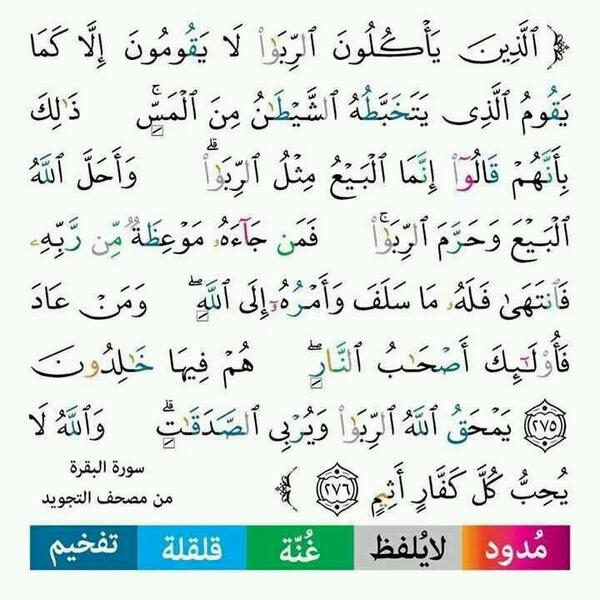 ﴿ ٱلَّذِينَ يَأۡكُلُونَ ٱلرِّبَوٰاْ لَا يَقُومُونَ إِلَّا كَمَا
يَقُومُ ٱلَّذِى يَتَخَبَّطُهُ ٱلشَّيۡطَـٰنُ مِنَ ٱلۡمَسِّۚ ذَٰلِكَ
بِأَنَّهُمۡ قَالُوٓاْ إِنَّمَا ٱلۡبَيۡعُ مِثۡلُ ٱلرِّبَوٰاْۗ وَأَحَلَّ ٱللَّهُ
ٱلۡبَيۡعَ وَحَرَّمَ ٱلرِّبَوٰاْۚ فَمَن جَآءَهُۥ مَوۡعِظَةٌ مِّن رَّبِّهِۦ
فَٱنتَهَىٰ فَلَهُۥ مَا سَلَفَ وَأَمۡرُهُۥٓ إِلَى ٱللَّهِۖ وَمَنۡ عَادَ
فَأُوْلَـٰٓئِكَ أَصۡحَـٰبُ ٱلنَّارِۖ هُمۡ فِيهَا خَـٰلِدُونَ
٢٧٥ يَمۡحَقُ ٱللَّهُ ٱلرِّبَوٰاْ وَيُرۡبِى ٱلصَّدَقَـٰتِۗ وَٱللَّهُ لَا
يُحِبُّ كُلَّ كَفَّارٍ أَثِيمٍ ٢٧٦ ﴾
سورة البقرة
من مصحف التجويد
مُدود لايُلفظ غُنّة قلقلة تفخيم